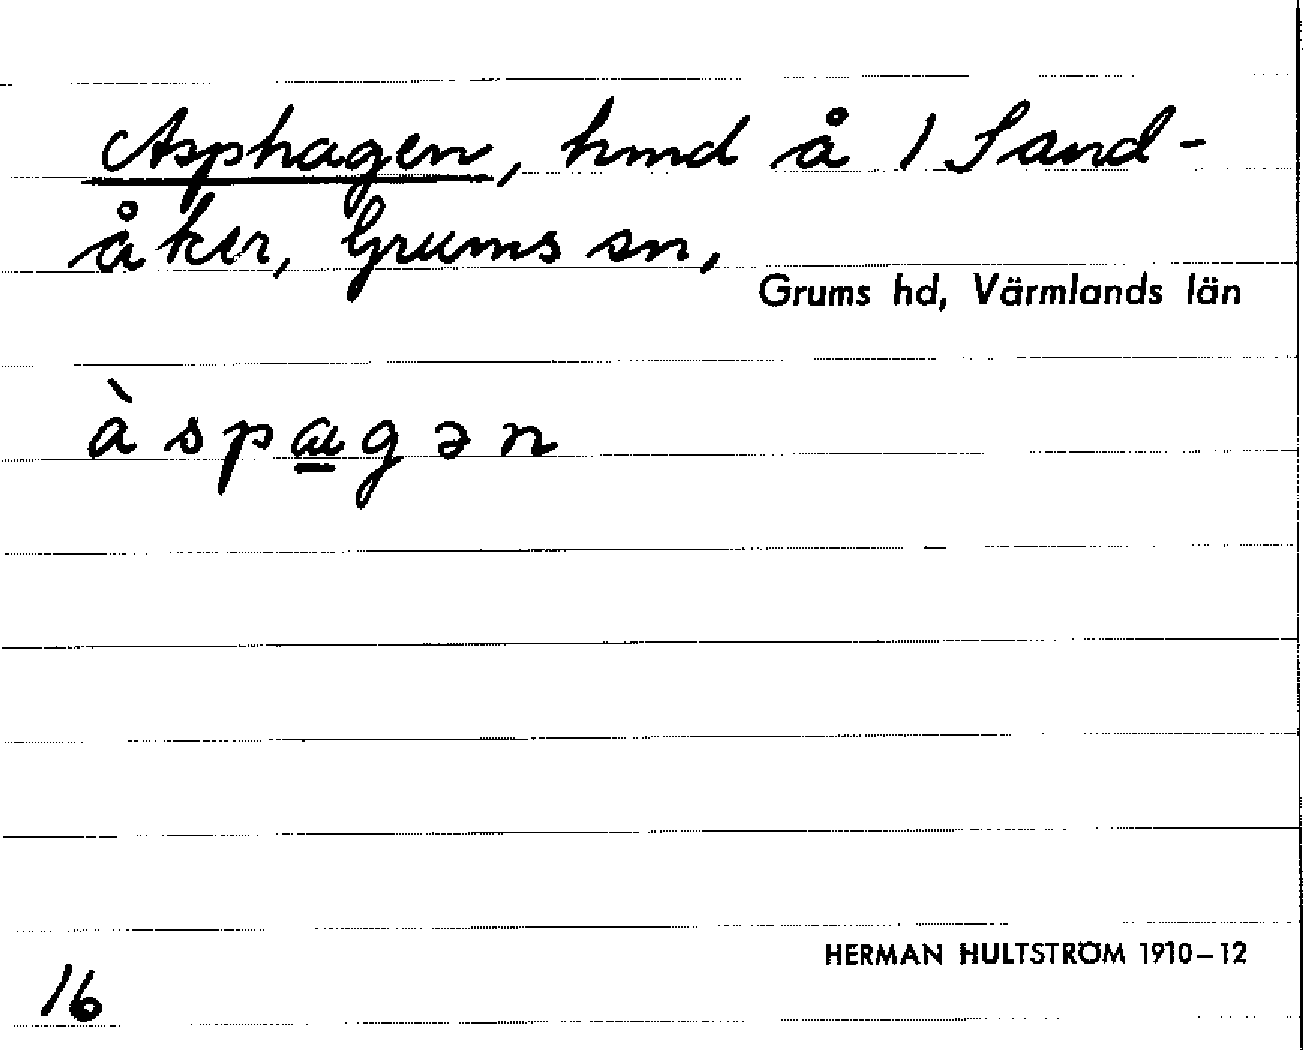 Asphagen, hmd å 1 Sand-
åker, Grums sn,
Grums hd, Värmlands län
àspa̲gən
16
HERMAN HULTSTRÖM 1910–12